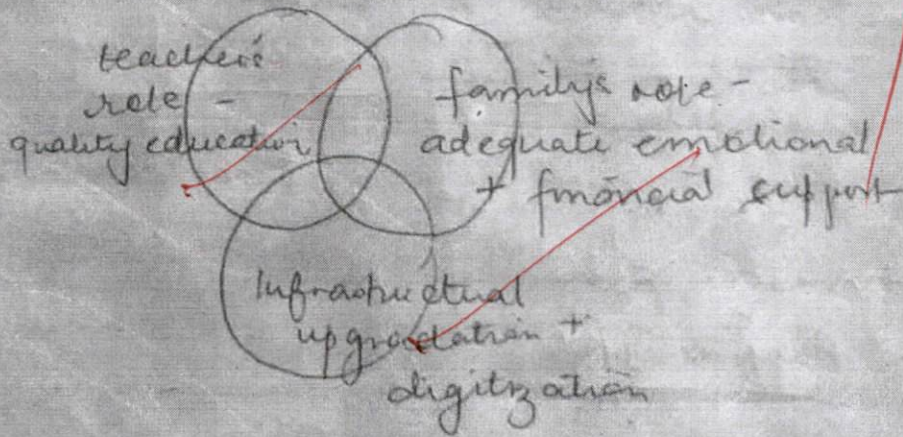 teacher's
role -
quality education
family's role -
adequate emotional
+ financial support
Infrastructual
upgradation +
digitization